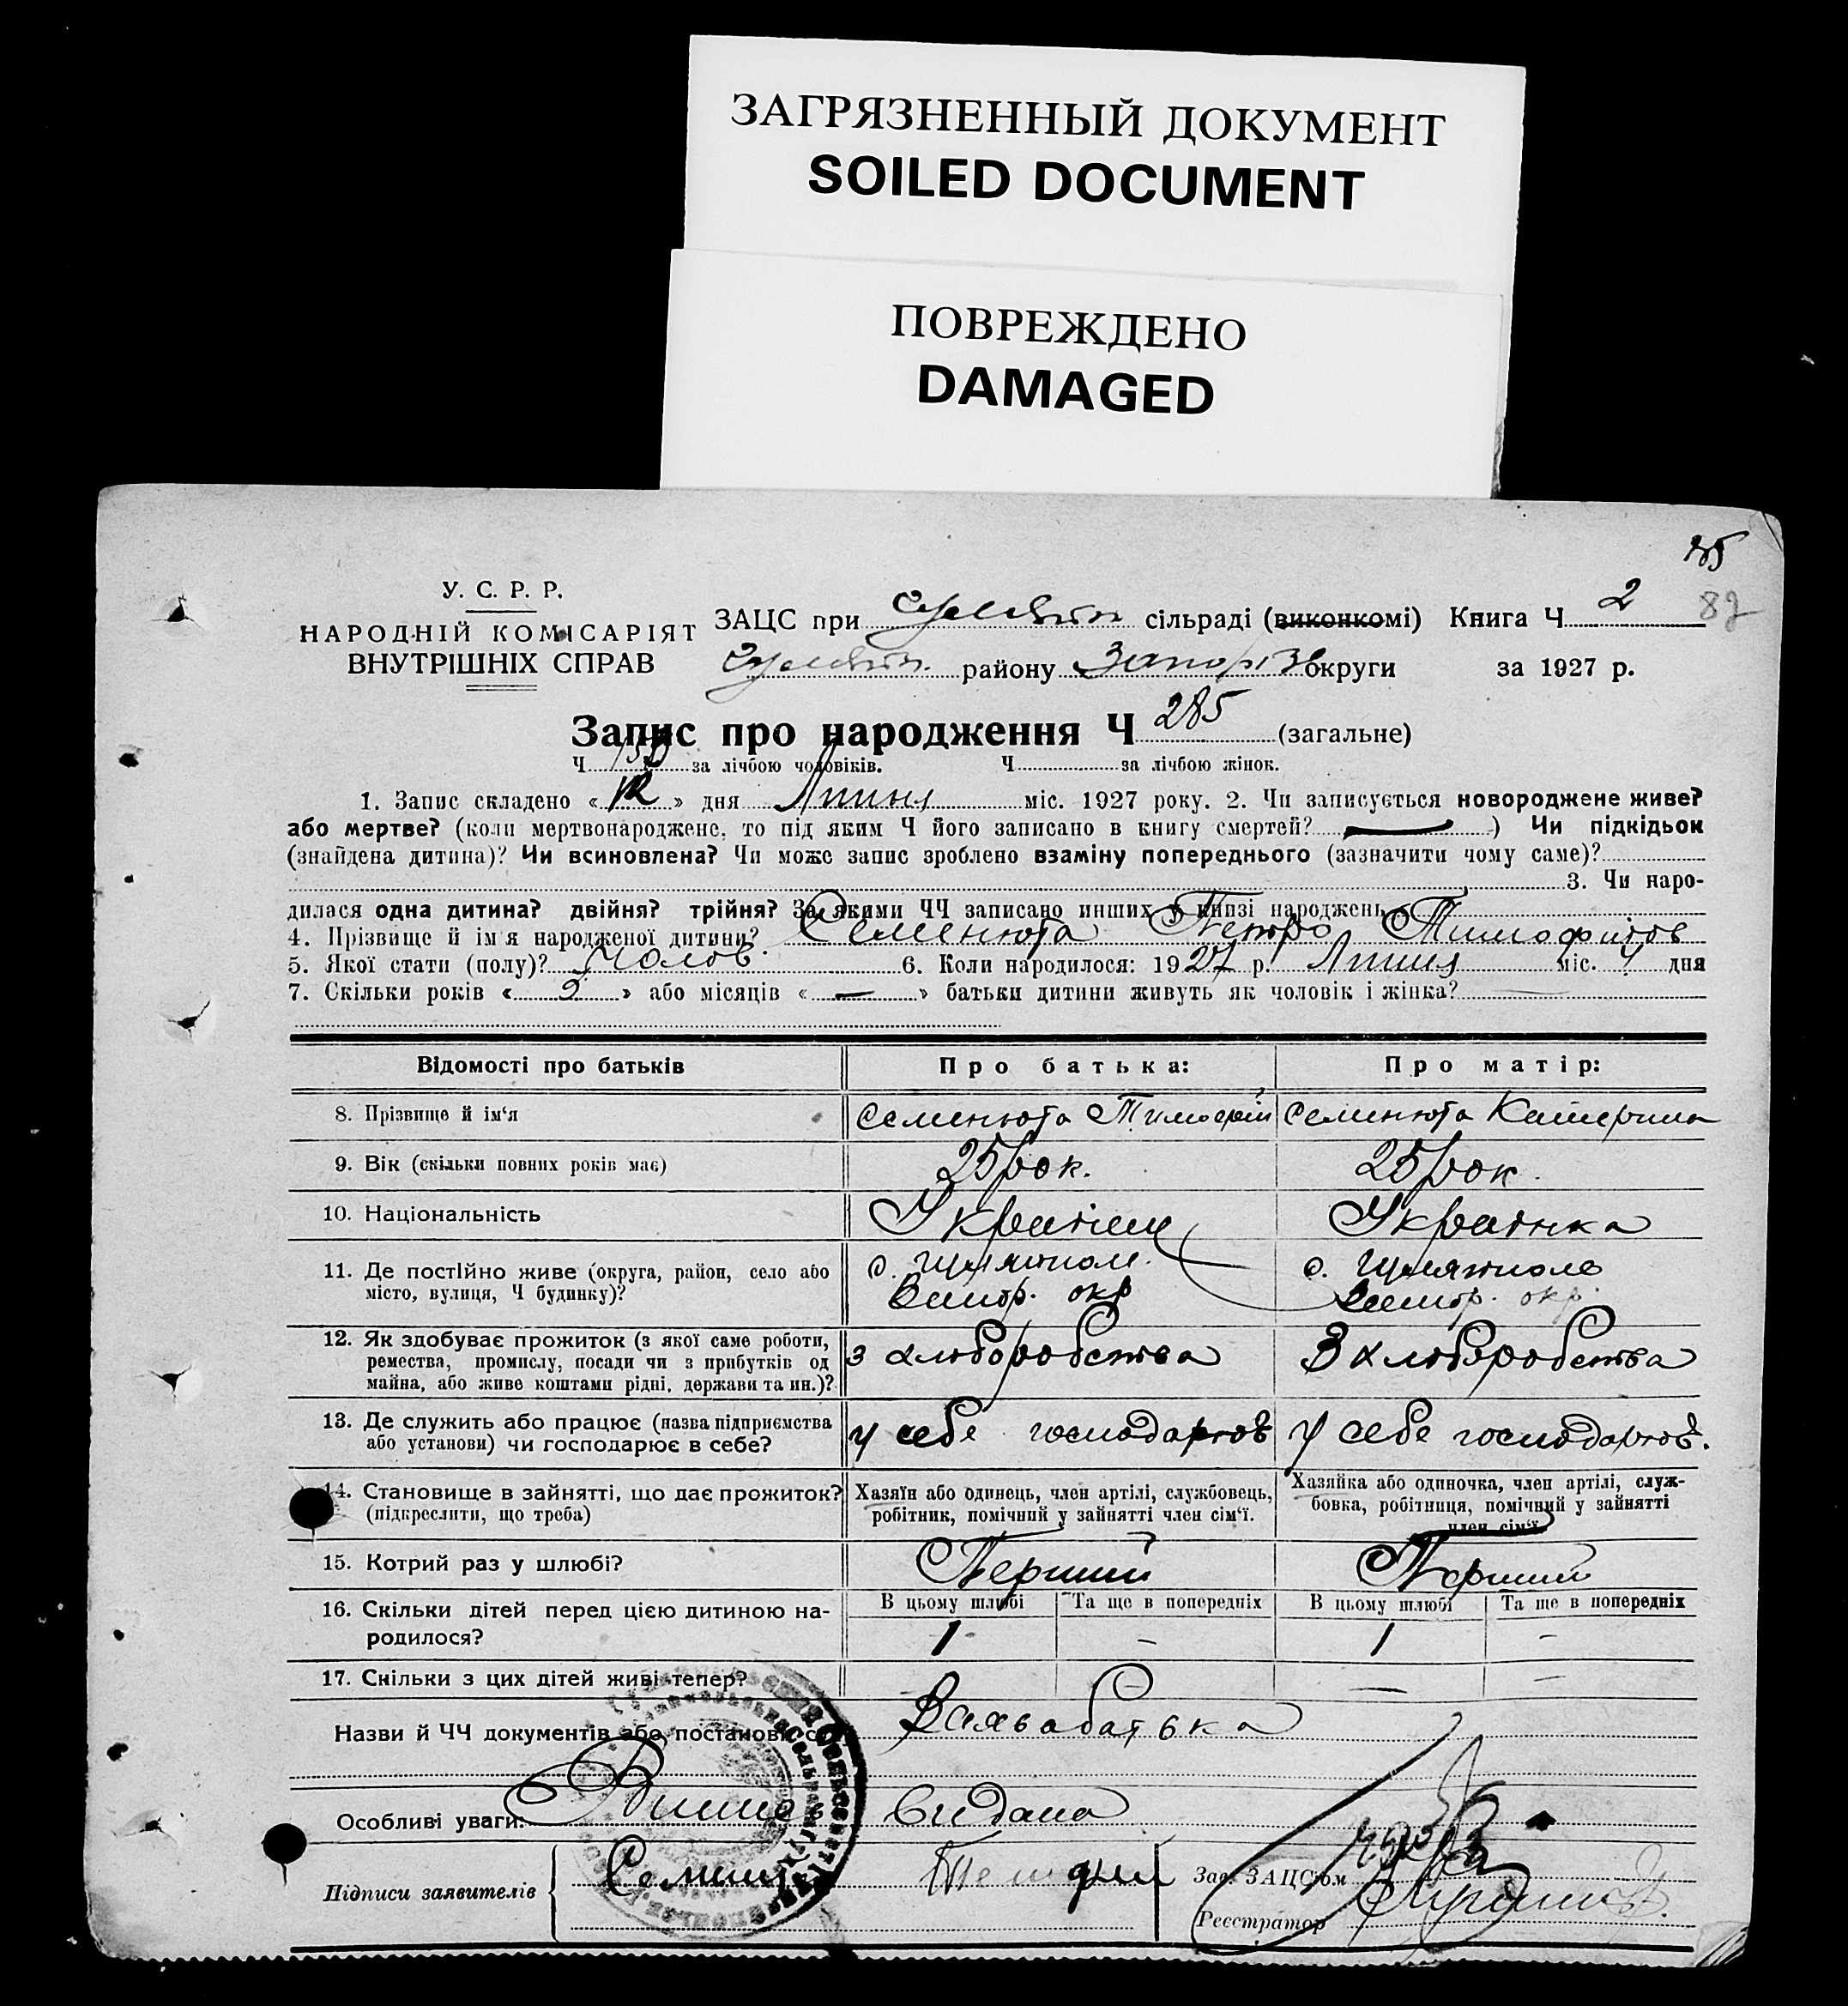 ЗАГРЯЗНЕННЫЙ ДОКУМЕНТ
SOILED DOCUMENT
ПОВРЕЖДЕНО
DAMAGED
У. С. Р. Р.
НАРОДНІЙ КОМІСАРІЯТ
ВНУТРІШНІХ СПРАВ
ЗАЦС при сільраді (виконкомі) Книга Ч 2
району Запоріз округи за 1927 р.
Запис про народження Ч 285 (загальне)
Ч за лічбою чоловіків. Ч за лічбою жінок.
1. Запис складено « 12 » дня Липня міс. 1927 року. 2. Чи записується новороджене живе?
або мертве? (коли мертвонароджене, то під яким Ч його записано в книгу смертей? —) Чи підкідьок
(знайдена дитина)? Чи всиновлена? Чи може запис зроблено взаміну попереднього (зазначити чому саме)?
3. Чи наро-
дилася одна дитина? двійня? трійня? За якими ЧЧ записано инших у книзі народжень
4. Прізвище й ім'я народженої дитини? Семенюта Петро Тимофіїов
5. Якої стати (полу)? Чолов. 6. Коли народилося: 1927 р. Липня міс. 4 дня
7. Скільки років « 5 » або місяців « — » батьки дитини живуть як чоловік і жінка?
Відомості про батьків Про батька: Про матір:
8. Прізвище й ім'я Семенюта Тимофій Семенюта Катерина
9. Вік (скільки повних років має) 25 рок. 25 рок.
10. Національність Українец Українка
11. Де постійно живе (округа, район, село або с. Гуляйполе
місто, вулиця, Ч будинку)? окр окр.
12. Як здобуває прожиток (з якої саме роботи, з хліборобства З хліборобства
ремества, промислу, посади чи з прибутків од
майна, або живе коштами рідні, держави та ин.)?
13. Де служить або працює (назва підприємства у себе господарюв у себе господарюв.
або установи) чи господарює в себе?
14. Становище в зайнятті, що дає прожиток? Хазяїн або одинець, член артілі, службовець, Хазяйка або одиночка, член артілі, служ-
(підкреслити, що треба) робітник, помічний у зайнятті член сім'ї. бовка, робітниця, помічний у зайнятті
член сім'ї.
15. Котрий раз у шлюбі? Перший Перший
16. Скільки дітей перед цією дитиною на- В цьому шлюбі Та ще в попередніх В цьому шлюбі Та ще в попередніх
родилося? 1 — 1 —
17. Скільки з цих дітей живі тепер? — — — —
Назви й ЧЧ документів або постанов
Особливі уваги: видана
Підписи заявителів
Зав. ЗАЦС'ом
Реєстратор